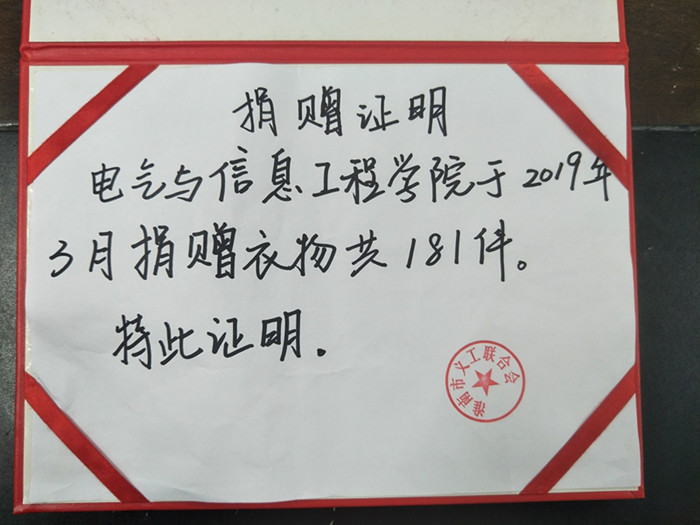 捐赠证明
电气与信息工程学院于2019年
3月捐赠衣物共181件。
特此证明.
淮南市义工联合会